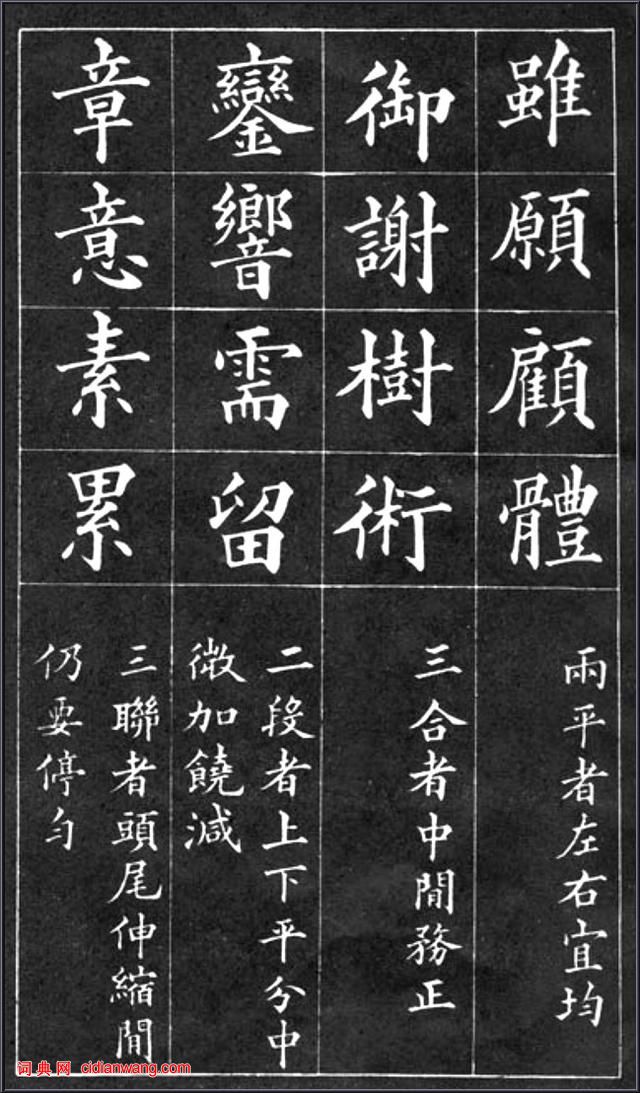 雖願顧體
兩平者左右宜均
御謝樹術
三合者中閒務正
鑾響需留
二段者上下平分中
微加饒減
章意素累
三聯者頭尾伸縮閒
仍要停勻
词典网 cidianwang.com